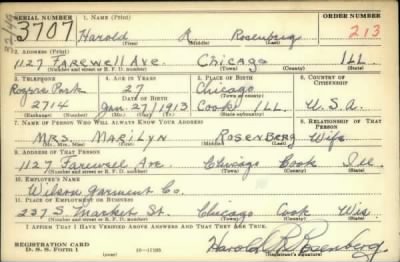 SERIAL NUMBER
1. NAME (Print)
ORDER NUMBER
3707
Harold R Rosenberg
213
(First) (Middle) (Last)
2. ADDRESS (Print)
1127 FAREWELL AVE. Chicago ILL
(Number and street or R. F. D. number) (Town) (County) (State)
3. TELEPHONE
4. AGE IN YEARS
5. PLACE OF BIRTH
6. COUNTRY OF CITIZENSHIP
Rogers Park
27
Chicago
DATE OF BIRTH
(Town or county)
2714
Jan 27 1913
Cook ILL
U.S.A.
(Exchange) (Number)
(Mo.) (Day) (Yr.)
(State or country)
7. NAME OF PERSON WHO WILL ALWAYS KNOW YOUR ADDRESS
8. RELATIONSHIP OF THAT PERSON
MRS. MARILYN ROSENBERG Wife
(Mr., Mrs., Miss) (First) (Middle) (Last)
9. ADDRESS OF THAT PERSON
1127 Farewell Ave Chicago Cook Ill
(Number and street or R. F. D. number) (Town) (County) (State)
10. EMPLOYER'S NAME
Wilson Garment Co.
11. PLACE OF EMPLOYMENT OR BUSINESS
237 S Market St. Chicago Cook
(Number and street or R. F. D. number) (Town) (County) (State)
I AFFIRM THAT I HAVE VERIFIED ABOVE ANSWERS AND THAT THEY ARE TRUE.
REGISTRATION CARD
D. S. S. Form 1
(over)
Harold R. Rosenberg
(Registrant's signature)